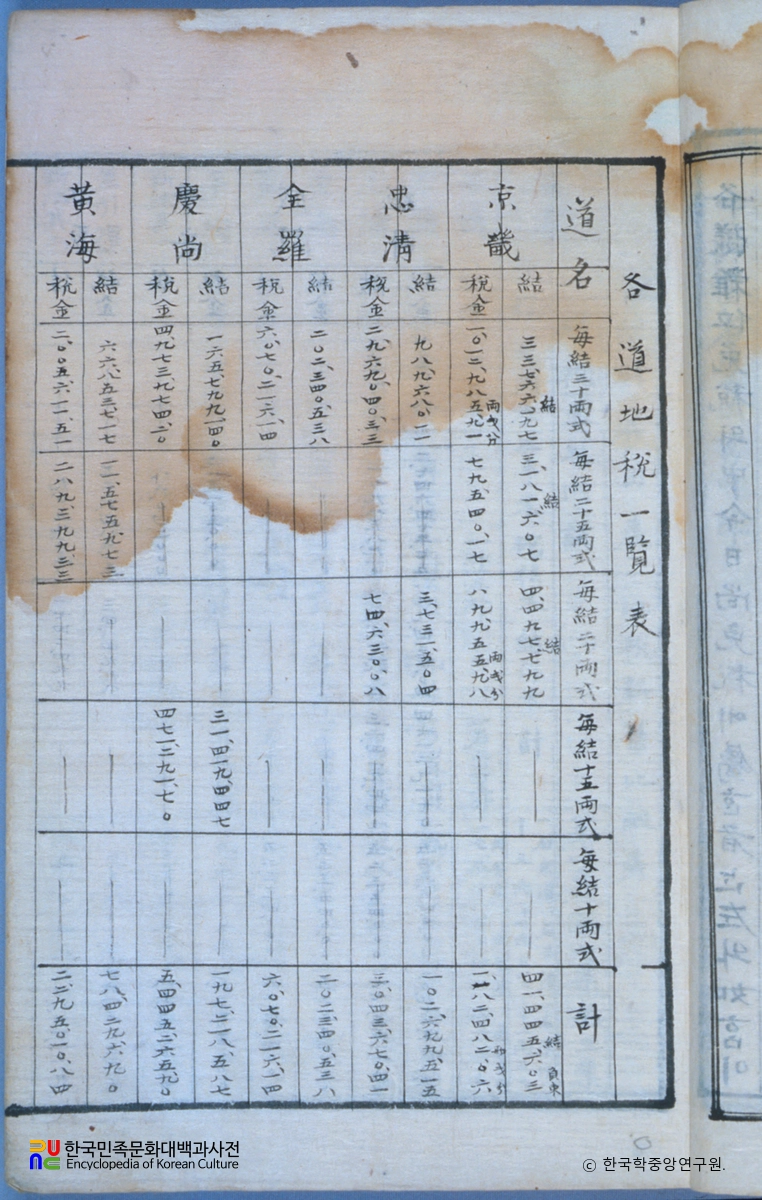 各道地稅一覽表
道名
每結三十両式
每結二十五両式
每結二十両式
每結十五両式
每結十両式
計
京畿
結
三三、七六六、一九七
結
三、一八一、六〇七
結
四、四九七、七九九
結
四一、四四五、六〇三
結 負束
稅金
一、〇一二、九八五、九一
両戔分
七九、五四〇、一七
八九、九五五、九八
両戔分
一、一八二、四八二、〇六
両戔分
忠清
結
九八、九六八、〇一一
三、七三一、五〇四
一〇二、六九九、五一五
稅金
二、九六九、〇四〇、三三
七四、六三〇、〇八
三、〇四三、六七〇、四一
全羅
結
二〇二、三四〇、五三八
二〇二、三四〇、五三八
稅金
六、〇七〇、二一六、一四
六、〇七〇、二一六、一四
慶尚
結
一六五、七九九、一四〇
三一、四一九、四四七
一九七、二一八、五八七
稅金
四、九七三、九七四、二〇
四七一、二九一、七〇
五、四四五、二六五、九〇
黃海
結
六六、八五三、七一七
一一、五七五、九七三
七八、四二九、六九〇
稅金
二、〇〇五、六一一、五一
二八九、三九九、三三
二、二九五、〇一〇、八四
한국민족문화대백과사전
Encyclopedia of Korean Culture
© 한국학중앙연구원.